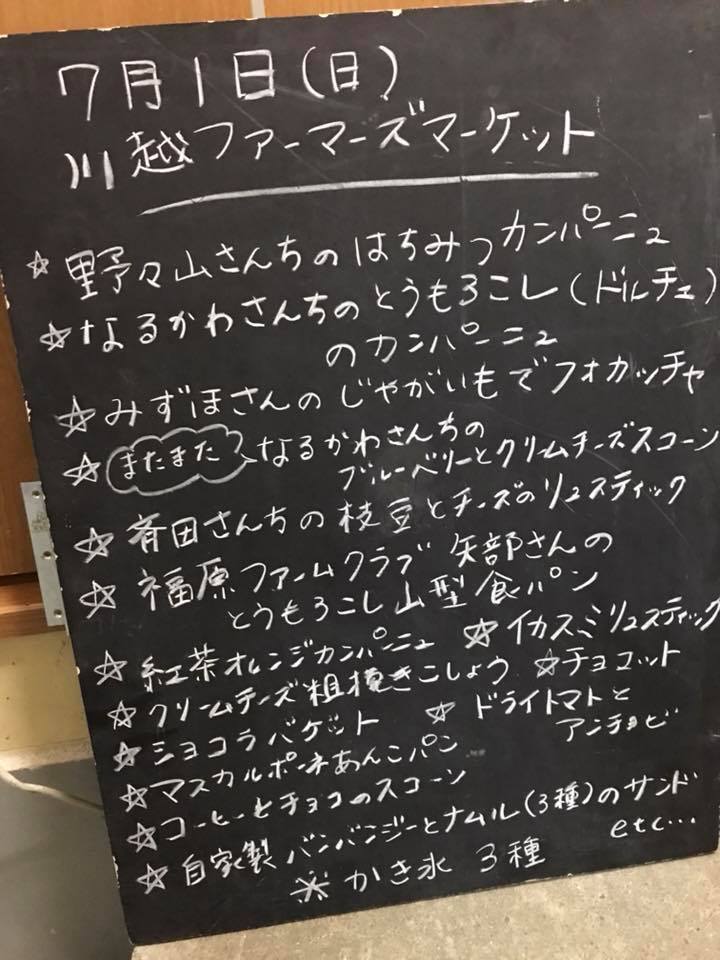 7月1日(日)
川越ファーマーズマーケット
☆ 野々山さんちの はちみつカンパーニュ
☆ なるかわさんちの とうもろこし(ドルチェ)
のカンパーニュ
☆ みずほさんの じゃがいもでフォカッチャ
☆ またまた なるかわさんちの
ブルーベリーとクリームチーズスコーン
☆ 斉田さんちの 枝豆とチーズのリュスティック
☆ 福原ファームクラブ 矢部さんの
とうもろこし山型食パン
☆ 紅茶オレンジカンパーニュ ☆ イカスミリュスティック
☆ クリームチーズ粗挽きこしょう ☆ チョコット
☆ ショコラバケット ☆ ドライトマトと
アンチョビ
☆ マスカルポーネあんこパン
☆ コーヒーとチョコのスコーン
☆ 自家製 バンバンジーとナムル(3種)のサンド
etc...
※ かき氷 3種